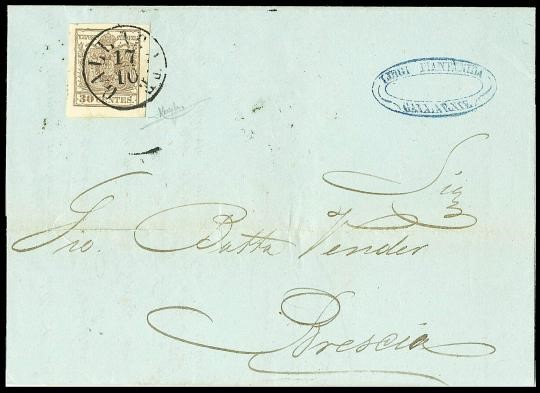 GALLARATE
17
10
30 CENTES.
LUIGI
GALLARATE
Sig
Gio. Batta Vender
Brescia